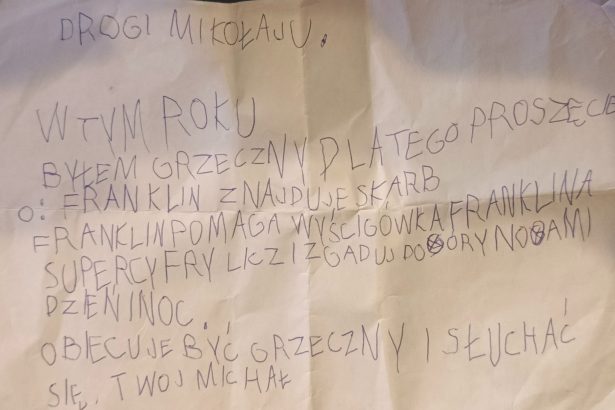 DROGI MIKOŁAJU.
W TYM ROKU
BYŁEM GRZECZNY DLATEGO PROSZĘ CIE
O: FRANKLIN ZNAJDUJE SKARB
FRANKLIN POMAGA WYŚCIGÓWKA FRANKLINA
SUPERCYFRY LICZ I ZGADUJ DO GÓRY NOGAMI
DZIEN I NOC.
OBIECUJE BYĆ GRZECZNY I SŁUCHAĆ
SIĘ. TWOJ MICHAŁ